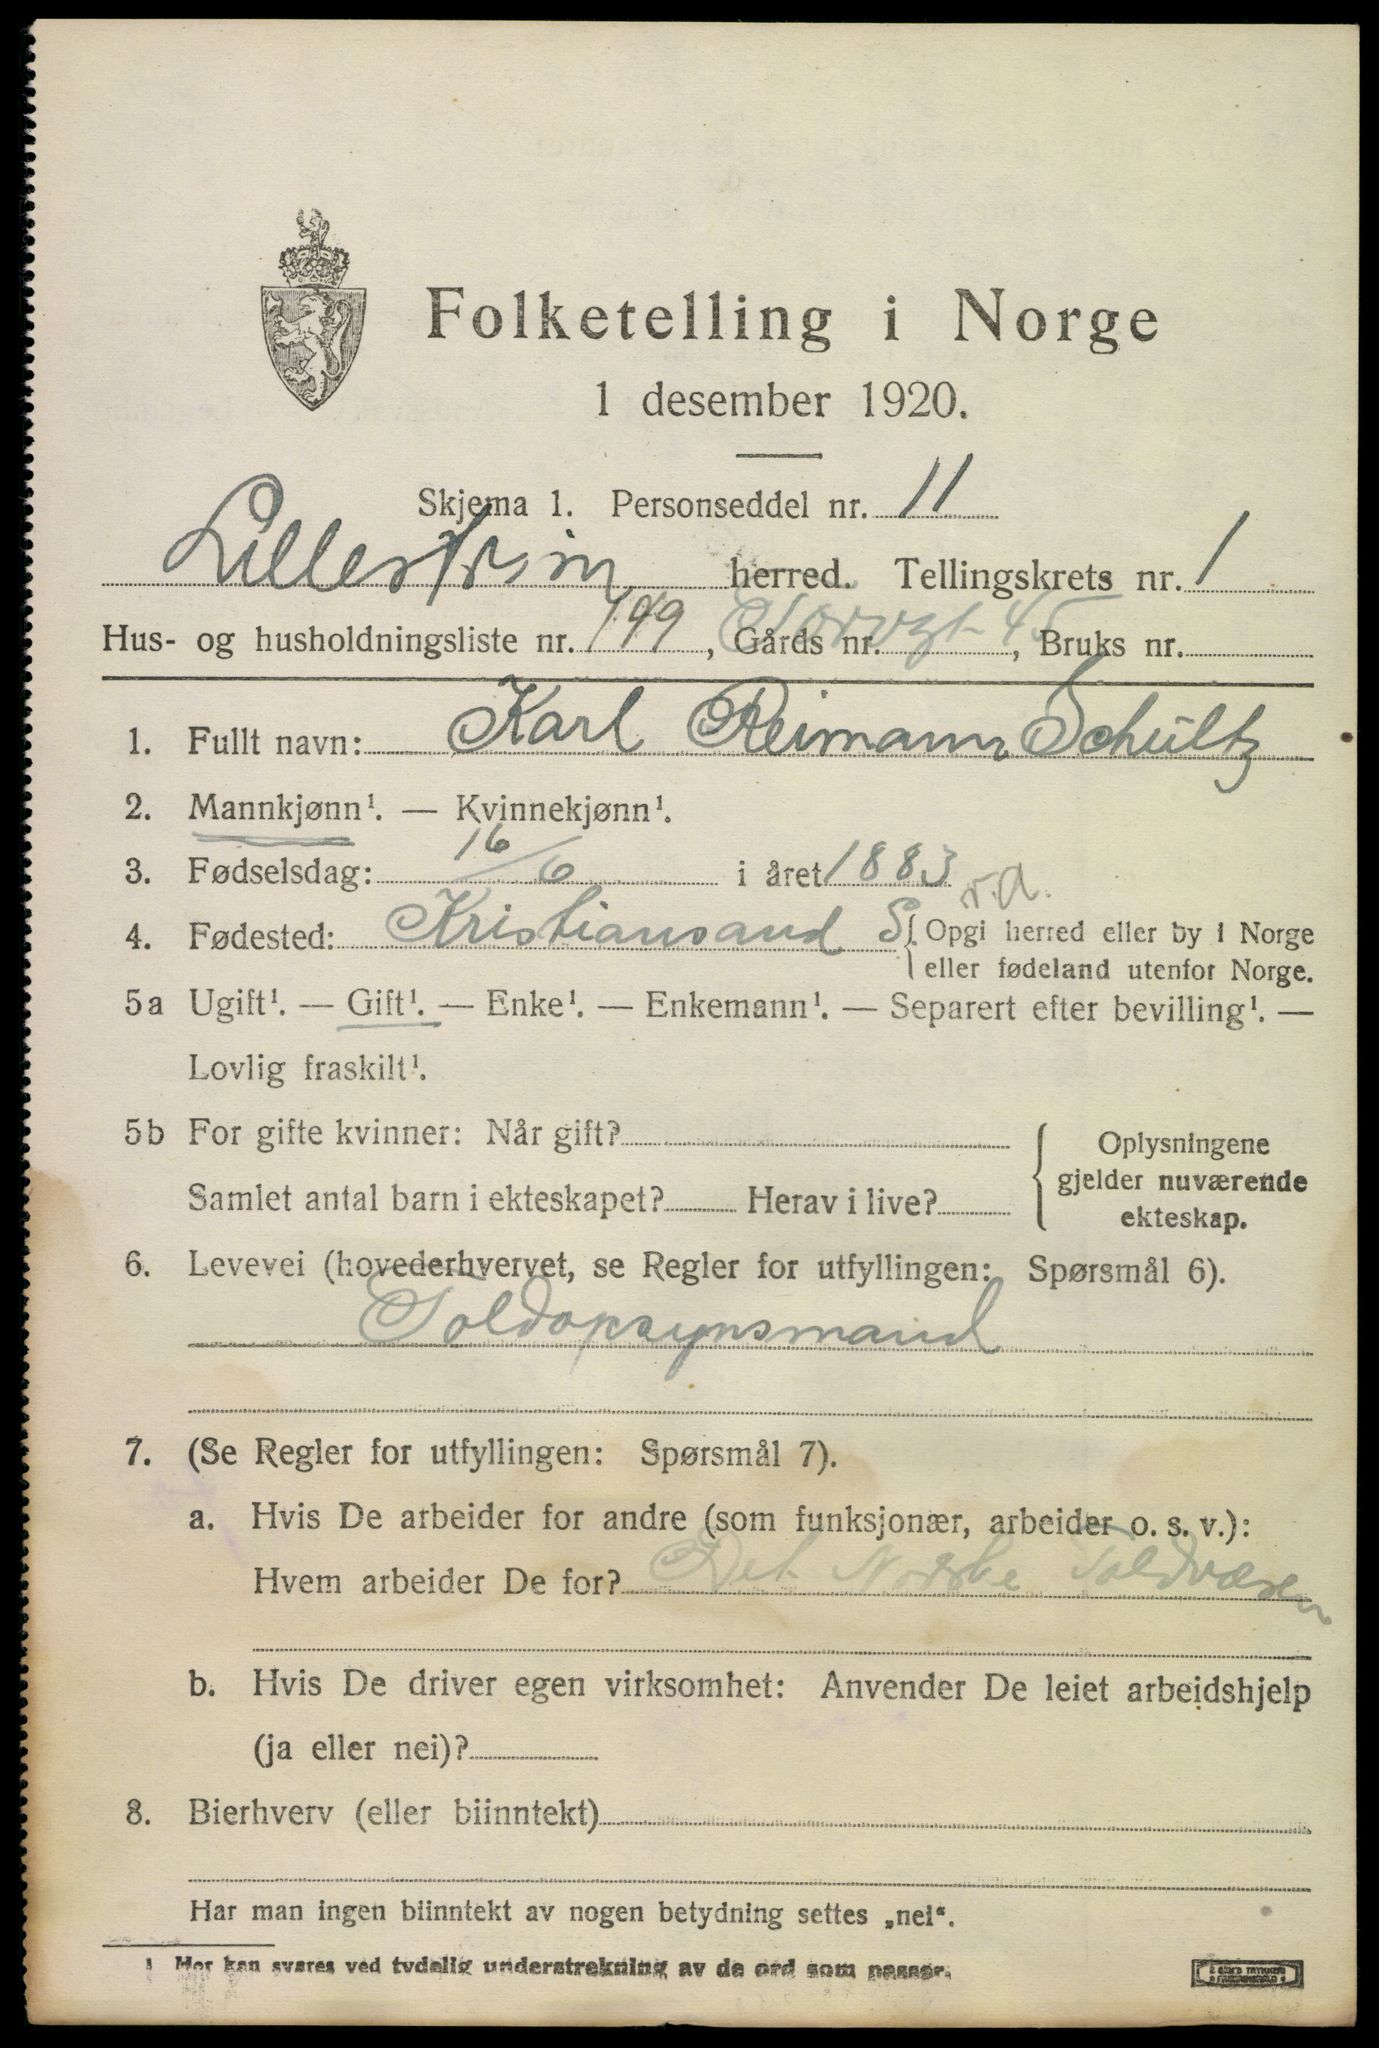 Folketelling i Norge
1 desember 1920.
Skjema 1. Personseddel nr. 11
Lillestrøm herred. Tellingskrets nr. 1
Hus- og husholdningsliste nr. 199, Gårds nr. Storgt 45, Bruks nr.
1. Fullt navn: Karl Reimann Schültz
2. Mannkjønn¹. — Kvinnekjønn¹.
3. Fødselsdag: 16/6 i året 1883
r.a.
4. Fødested: Kristiansand S. { Opgi herred eller by i Norge
eller fødeland utenfor Norge.
5a Ugift¹. — Gift¹. — Enke¹. — Enkemann¹. — Separert efter bevilling¹. —
Lovlig fraskilt¹.
5b For gifte kvinner: Når gift?
Samlet antal barn i ekteskapet? Herav i live?
{ Oplysningene
gjelder nuværende
ekteskap.
6. Levevei (hovederhvervet, se Regler for utfyllingen: Spørsmål 6).
Toldopsynsmand
7. (Se Regler for utfyllingen: Spørsmål 7).
a. Hvis De arbeider for andre (som funksjonær, arbeider o. s. v.):
Hvem arbeider De for? Det Norske Toldvæsen
b. Hvis De driver egen virksomhet: Anvender De leiet arbeidshjelp
(ja eller nei)?
8. Bierhverv (eller biinntekt)
Har man ingen biinntekt av nogen betydning settes „nei“.
¹ Her kan svares ved tydelig understrekning av de ord som passer.